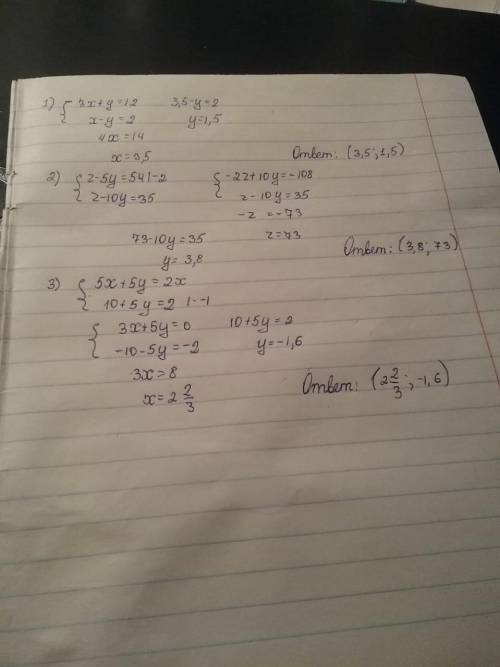 1) { 3x+y=12   3,5-y=2
x-y=2   y=1,5
4x=14
x=3,5   Ответ: (3,5; 1,5)
2) { z-5y=54|-2   { -2z+10y=-108
z-10y=35   z-10y=35
-z=-73
73-10y=35   z=73
y=3,8   Ответ: (3,8; 73)
3) { 5x+5y=2x
10+5y=2 |·-1
{ 3x+5y=0   10+5y=2
-10-5y=-2   y=-1,6
3x=8
x=2 2/3   Ответ: (2 2/3; -1,6)